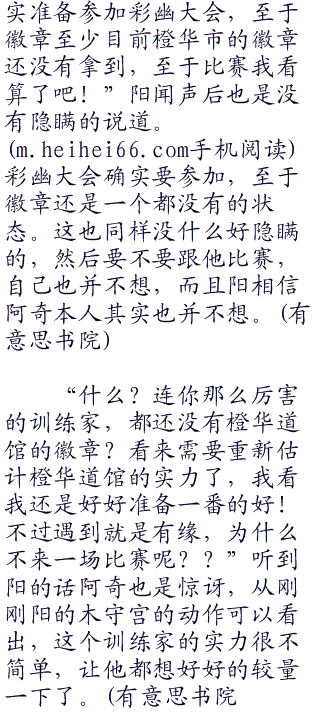 实准备参加彩幽大会，至于
徽章至少目前橙华市的徽章
还没有拿到，至于比赛我看
算了吧！”阳闻声后也是没
有隐瞒的说道。
(m.heihei66.com手机阅读)
彩幽大会确实要参加，至于
徽章还是一个都没有的状
态。这也同样没什么好隐瞒
的，然后要不要跟他比赛，
自己也并不想，而且阳相信
阿奇本人其实也并不想。(有
意思书院)
“什么？连你那么厉害
的训练家，都还没有橙华道
馆的徽章？看来需要重新估
计橙华道馆的实力了，我看
我还是好好准备一番的好！
不过遇到就是有缘，为什么
不来一场比赛呢？？”听到
阳的话阿奇也是惊讶，从刚
刚阳的木守宫的动作可以看
出，这个训练家的实力很不
简单，让他都想好好的较量
一下了。(有意思书院